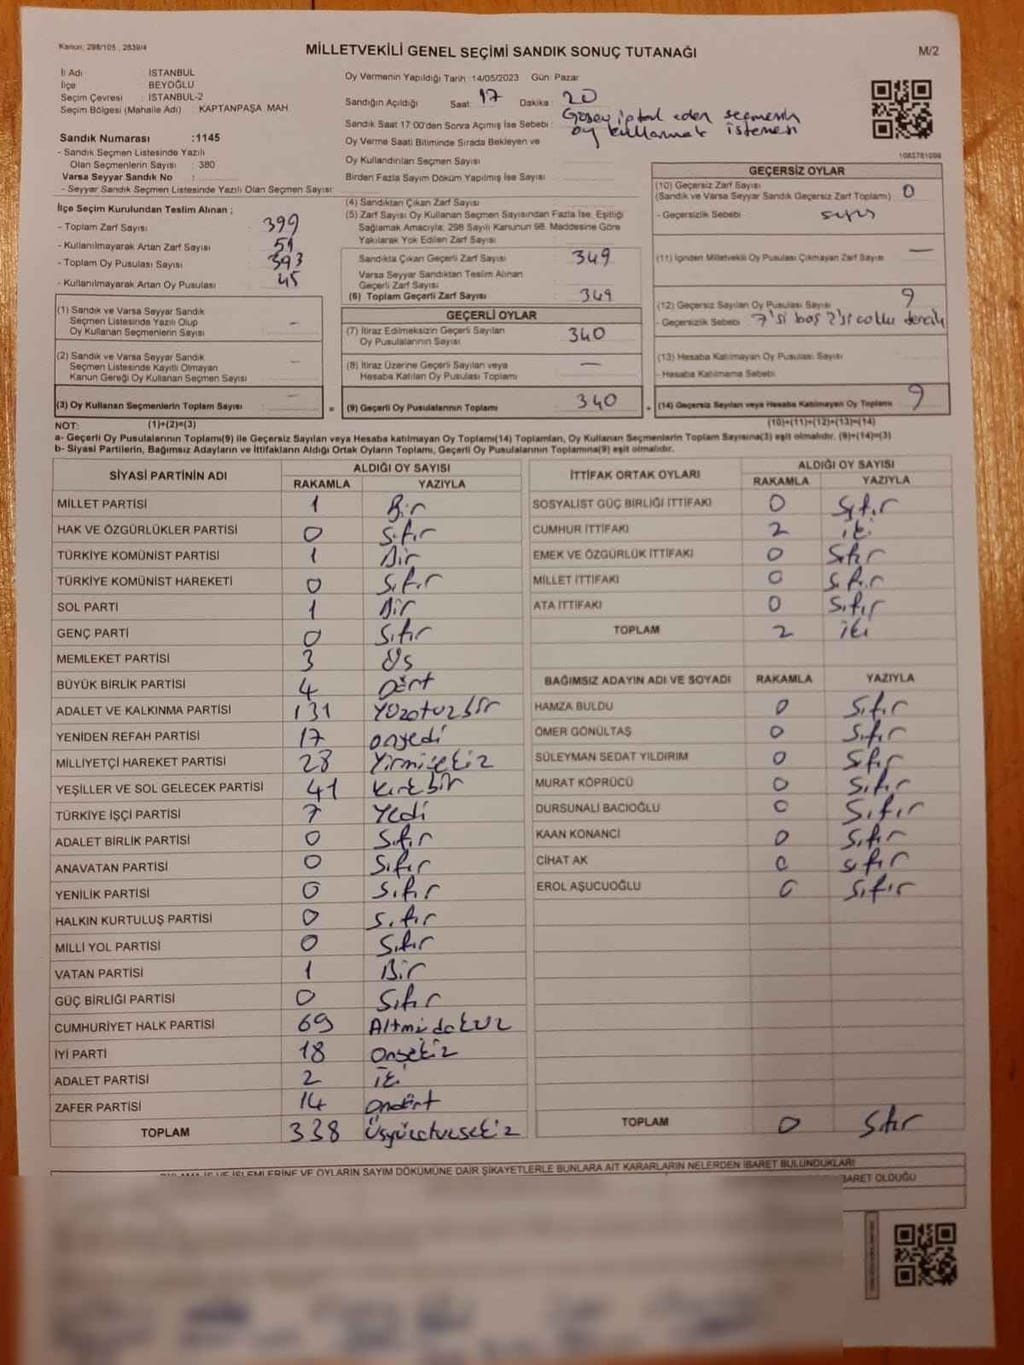 Kanun: 298/105, 2839/4
MİLLETVEKİLİ GENEL SEÇİMİ SANDIK SONUÇ TUTANAĞI
M/2
İl Adı İSTANBUL
İlçe BEYOĞLU
Seçim Çevresi İSTANBUL-2
Seçim Bölgesi (Mahalle Adı) : KAPTANPAŞA MAH.
Sandık Numarası :1145
- Sandık Seçmen Listesinde Yazılı
Olan Seçmenlerin Sayısı : 380
Varsa Seyyar Sandık No :
- Seyyar Sandık Seçmen Listesinde Yazılı Olan Seçmen Sayısı:
Oy Vermenin Yapıldığı Tarih :14/05/2023 Gün: Pazar
Sandığın Açıldığı Saat: 17 Dakika : 20
Sandık Saat 17:00'den Sonra Açımış İse Sebebi : iptal eden seçmenin
oy kullanmak istemesi
Oy Verme Saati Bitiminde Sırada Bekleyen ve
Oy Kullandırılan Seçmen Sayısı
Birden Fazla Sayım Döküm Yapılmış İse Sayısı
1083781098
İlçe Seçim Kurulundan Teslim Alınan ;
- Toplam Zarf Sayısı 399
- Kullanılmayarak Artan Zarf Sayısı 51
- Toplam Oy Pusulası Sayısı 393
- Kullanılmayarak Artan Oy Pusulası 45
(1) Sandık ve Varsa Seyyar Sandık
Seçmen Listesinde Yazılı Olup
Oy Kullanan Seçmenlerin Sayısı -
(2) Sandık ve Varsa Seyyar Sandık
Seçmen Listesinde Kayıtlı Olmayan
Kanun Gereği Oy Kullanan Seçmen Sayısı -
(3) Oy Kullanan Seçmenlerin Toplam Sayısı -
(4) Sandıktan Çıkan Zarf Sayısı
(5) Zarf Sayısı Oy Kullanan Seçmen Sayısından Fazla İse, Eşitliği
Sağlamak Amacıyla; 298 Sayılı Kanunun 98. Maddesine Göre
Yakılarak Yok Edilen Zarf Sayısı
Sandıkta Çıkan Geçerli Zarf Sayısı 349
Varsa Seyyar Sandıktan Teslim Alınan
Geçerli Zarf Sayısı
(6) Toplam Geçerli Zarf Sayısı 349
GEÇERLİ OYLAR
(7) İtiraz Edilmeksizin Geçerli Sayılan
Oy Pusulalarının Sayısı 340
(8) İtiraz Üzerine Geçerli Sayılan veya
Hesaba Katılan Oy Pusulası Toplamı —
= (9) Geçerli Oy Pusulalarının Toplamı 340
GEÇERSİZ OYLAR
(10) Geçersiz Zarf Sayısı
(Sandık ve Varsa Seyyar Sandık Geçersiz Zarf Toplamı) 0
- Geçersizlik Sebebi
(11) İçinden Milletvekili Oy Pusulası Çıkmayan Zarf Sayısı —
(12) Geçersiz Sayılan Oy Pusulası Sayısı 9
- Geçersizlik Sebebi 7'si boş 2'si
(13) Hesaba Katılmayan Oy Pusulası Sayısı
- Hesaba Katılmama Sebebi
+ (14) Geçersiz Sayılan veya Hesaba Katılmayan Oy Toplamı 9
NOT: (1)+(2)=(3) (10)+(11)+(12)+(13)=(14)
a- Geçerli Oy Pusulalarının Toplamı(9) ile Geçersiz Sayılan veya Hesaba katılmayan Oy Toplamı(14) Toplamları, Oy Kullanan Seçmenlerin Toplam Sayısına(3) eşit olmalıdır. (9)+(14)=(3)
b- Siyasi Partilerin, Bağımsız Adayların ve İttifakların Aldığı Ortak Oyların Toplamı, Geçerli Oy Pusulalarının Toplamına(9) eşit olmalıdır.
SİYASİ PARTİNİN ADI ALDIĞI OY SAYISI
RAKAMLA YAZIYLA
MİLLET PARTİSİ 1 Bir
HAK VE ÖZGÜRLÜKLER PARTİSİ 0 Sıfır
TÜRKİYE KOMÜNİST PARTİSİ 1 Bir
TÜRKİYE KOMÜNİST HAREKETİ 0 Sıfır
SOL PARTİ 1 Bir
GENÇ PARTİ 0 Sıfır
MEMLEKET PARTİSİ 3 Üç
BÜYÜK BİRLİK PARTİSİ 4 Dört
ADALET VE KALKINMA PARTİSİ 131 Yüzotuzbir
YENİDEN REFAH PARTİSİ 17 onyedi
MİLLİYETÇİ HAREKET PARTİSİ 28 Yirmisekiz
YEŞİLLER VE SOL GELECEK PARTİSİ 41 Kırkbir
TÜRKİYE İŞÇİ PARTİSİ 7 Yedi
ADALET BİRLİK PARTİSİ 0 Sıfır
ANAVATAN PARTİSİ 0 Sıfır
YENİLİK PARTİSİ 0 Sıfır
HALKIN KURTULUŞ PARTİSİ 0 Sıfır
MİLLİ YOL PARTİSİ 0 Sıfır
VATAN PARTİSİ 1 Bir
GÜÇ BİRLİĞİ PARTİSİ 0 Sıfır
CUMHURİYET HALK PARTİSİ 69 Altmıdokuz
İYİ PARTİ 18 Onsekiz
ADALET PARTİSİ 2 İki
ZAFER PARTİSİ 14 Ondört
TOPLAM 338 Üçyüzotuzsekiz
İTTİFAK ORTAK OYLARI ALDIĞI OY SAYISI
RAKAMLA YAZIYLA
SOSYALİST GÜÇ BİRLİĞİ İTTİFAKI 0 Sıfır
CUMHUR İTTİFAKI 2 iki
EMEK VE ÖZGÜRLÜK İTTİFAKI 0 Sıfır
MİLLET İTTİFAKI 0 Sıfır
ATA İTTİFAKI 0 Sıfır
TOPLAM 2 iki
BAĞIMSIZ ADAYIN ADI VE SOYADI RAKAMLA YAZIYLA
HAMZA BULDU 0 Sıfır
ÖMER GÖNÜLTAŞ 0 Sıfır
SÜLEYMAN SEDAT YILDIRIM 0 Sıfır
MURAT KÖPRÜCÜ 0 Sıfır
DURSUNALİ BACIOĞLU 0 Sıfır
KAAN KONANCİ 0 Sıfır
CİHAT AK 0 sıfır
EROL AŞUCUOĞLU 0 Sıfır
TOPLAM 0 Sıfır
İŞLEMLERİNE VE OYLARIN SAYIM DÖKÜMÜNE DAİR ŞİKAYETLERLE BUNLARA AİT KARARLARIN NELERDEN İBARET BULUNDUKLARI
İBARET OLDUĞU